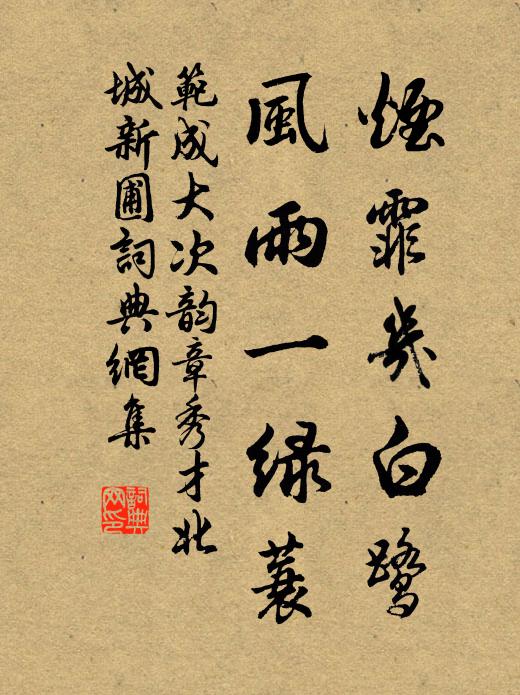 煙霏幾白鷺
風雨一緑蓑
範成大次韵章秀才北
城新圃詞典網集
詞典
网印